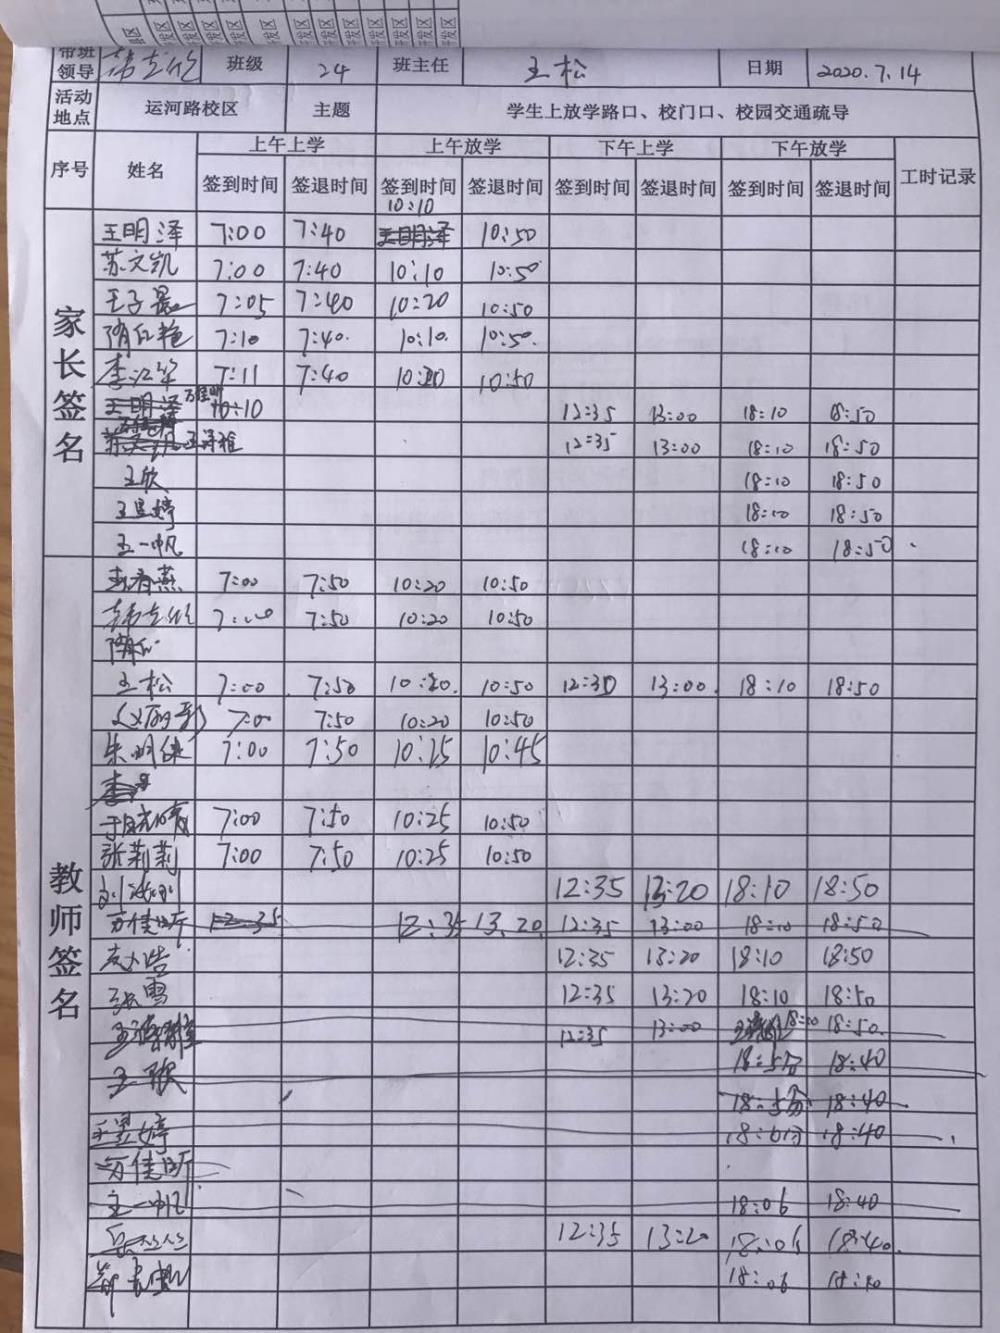 带班领导 班级 24 班主任 王松 日期 2020.7.14
活动地点 运河路校区 主题 学生上放学路口、校门口、校园交通疏导
序号 姓名 上午上学 上午放学 下午上学 下午放学 工时记录
签到时间 签退时间 签到时间 签退时间 签到时间 签退时间 签到时间 签退时间
10:10
家长签名
王明泽 7:00 7:40 王明泽 10:50
苏文凯 7:00 7:40 10:10 10:50
王子晨 7:05 7:40 10:20 10:50
7:10 7:40. 10:10. 10:50.
李江华 7:11 7:40 10:20 10:50
王明泽 万佳昕 10:10 12:35 13:00 18:10 18:50
苏文凯 王泽雅 12:35 13:00 18:10 18:50
王欣 18:10 18:50
王昱婷 18:10 18:50
王一帆 18:10 18:50
教师签名
7:00 7:50 10:20 10:50
7:00 7:50 10:20 10:50
王松 7:00 7:50 10:20. 10:50 12:35 13:00. 18:10 18:50
7:00 7:50 10:20 10:50
朱明侠 7:00 7:50 10:25 10:45
李
7:00 7:50 10:25 10:50
张莉莉 7:00 7:50 10:25 10:50
12:35 13:20 18:10 18:50
万佳昕 12:35 12:35 13.20 12:35 13:00 18:10 18:50
12:35 13:20 18:10 18:50
张雪 12:35 13:20 18:10 18:50
12:35 13:00 18:10 18:50.
王欣 18:5分 18:40
18:5分 18:40
王昱婷 18:6分 18:40
万佳昕
王一帆 18:06 18:40
12:35 13:20 18:06 18:40.
18:06 18:40